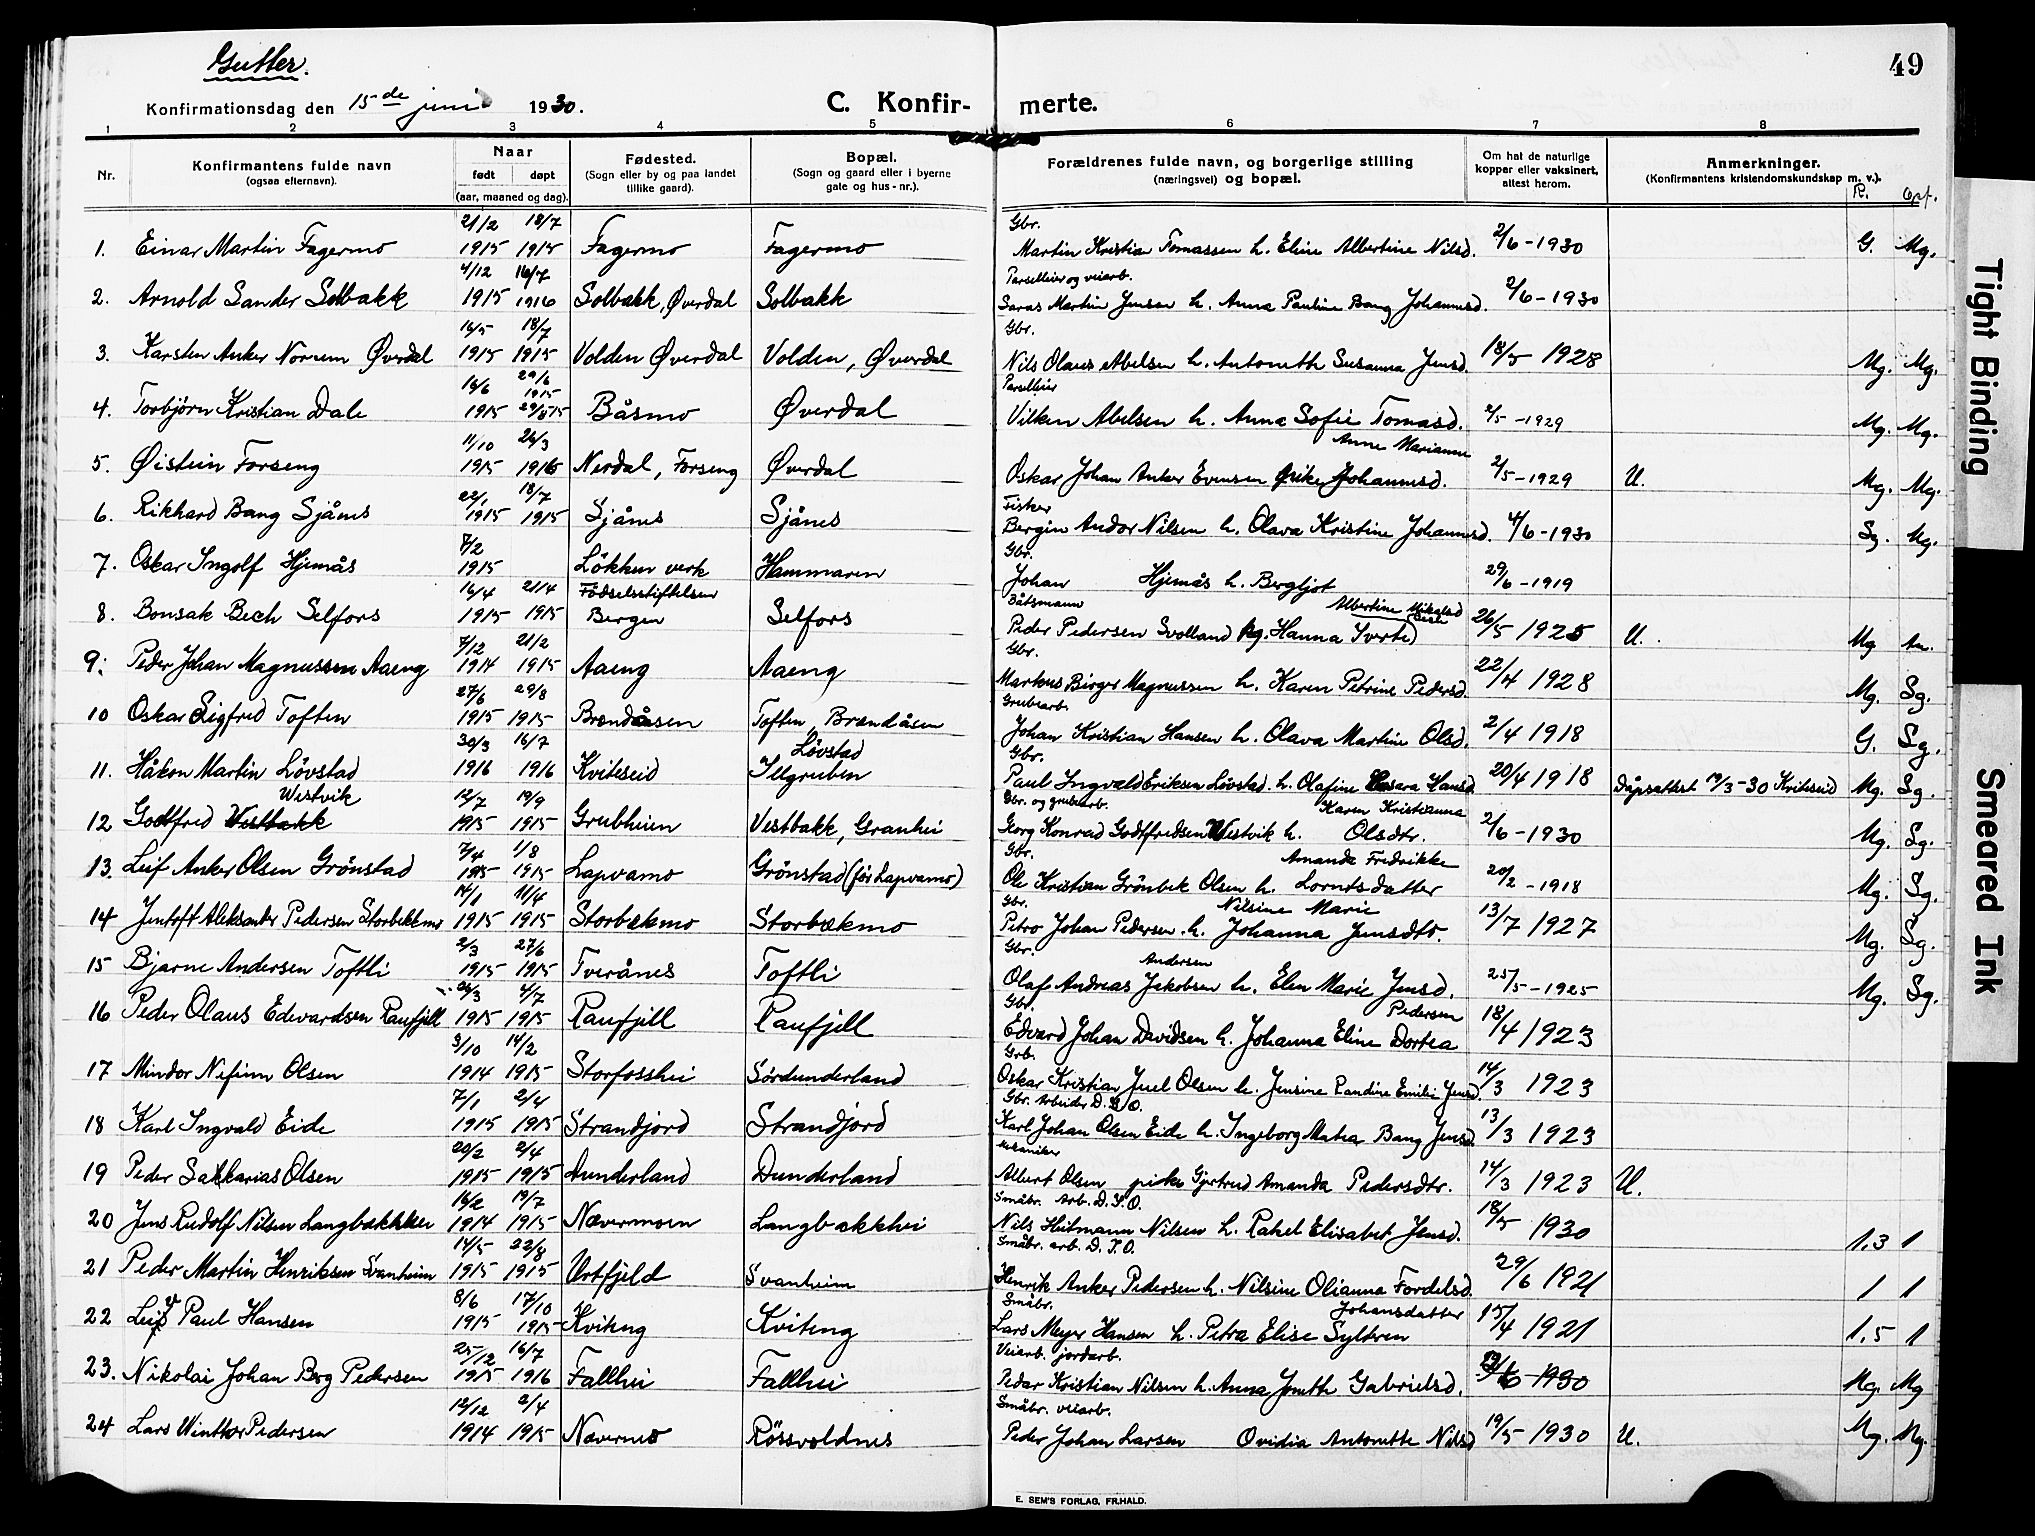 Gutter.
49
Konfirmationsdag den 15de juni 1930. C. Konfir- merte.
1 2 3 4 5 6 7 8
Nr. Konfirmantens fulde navn (ogsaa efternavn). Naar født døpt (aar, maaned og dag). Fødested. (Sogn eller by og paa landet tillike gaard). Bopæl. (Sogn og gaard eller i byerne gate og hus-nr.). Forældrenes fulde navn, og borgerlige stilling (næringsvei) og bopæl. Om hat de naturlige kopper eller vaksinert, attest herom. Anmerkninger. (Konfirmantens kristendomskundskap m. v.).
1. Einar Martin Fagermo 21/2 1915 18/7 1915 Fagermo Fagermo Gbr. Martin Kristia Tomassen h. Eline Albertine Nilsd. 2/6-1930 G. Mg.
2. Arnold Sander Solbakk 4/12 1915 16/7 1916 Solbakk, Øverdal Solbakk Parselleier og veiarb. Martin Jensen h. Anna Pauline Bang Johannesd. 2/6-1930
3. Karsten Anker Norum Øverdal 16/5 1915 18/7 1915 Volden Øverdal Volden, Øverdal Gbr. Nils Olaus Abelsen h. Antoneth Susanna Jensd. 18/5 1928 Mg. Mg.
4. Torbjörn Kristian Dale 16/6 1915 29/6 1915 Båsmo Øverdal Parselleier Vilken Abelsen h. Anna Sofie Tomasd. 2/5-1929 Mg. Mg.
5. Øistein Forseng 11/10 1915 26/3 1916 Nerdal, Forseng Øverdal Oskar Johan Anker Evensen Anne Marianne Johannesd. 2/5-1929 U. Mg. Mg.
6. Rikhard Bang Sjånes 22/1 1915 18/7 1915 Sjånes Sjånes Fisker Bergin Andor Nilsen h. Olava Kristine Johannesd. 4/6-1930 Sg. Mg.
7. Oskar Ingolf Hjemås 7/2 1915 Lökken verk Hammaren Gbr. Johan Hjemås h. Bergljot 29/6-1919
8. Bonsak Bech Selfors 16/4 1915 21/4 1915 Födselsstiftelsen Bergen Selfors Båtsmann Peder Pedersen Svolland pg. Hanna Albertine 26/5 1925 U. Mg
9. Peder Johan Magnussen Aaeng 7/12 1914 21/2 1915 Aaeng Aaeng Gbr. Markus Birger Magnussen h. Karen Petrine Pedersd. 22/4 1928 Mg. Sg.
10 Oskar Sigfred Toften 27/6 1915 29/8 1915 Brendåsen Toften, Brendåsen Grubearb. Johan Kristian Hansen h. Olava Martine Olsd. 2/4 1918 G. Sg.
11. Håkon Martin Lövstad 30/3 1916 16/7 1916 Kviteseid Lövstad Ilgruben Gbr. Paul Ingvald Eriksen Lövstad. h. Olafine Hansd 20/4 1918 Dåpsattest 19/3-30 Kviteseid Mg. Sg.
12 Godtfred Vestbakk Westvik 12/7 1915 19/9 1915 Grubheien Vestbakk, Granhei Gbr. og grubearb. Georg Konrad Godtfredsen Westvik h. Karen Kristianna Olsdtr. 2/6-1930 Mg. Sg.
13. Leif Anker Olsen Grönstad 7/4 1915 1/8 1915 Lapvamo Grönstad (för Lapvamo) Gbr. Ole Kristian Grönbek Olsen h. Amanda Fredrikke Lorntsdatter 20/2-1918 Mg. Sg.
14 Jentoft Aleksander Pedersen Storbekkmo 14/1 1915 11/4 1915 Storbekmo Storbekmo Gbr. Petro Johan Pedersen. h. Nilsine Marie Johanna Jensdtr. 13/7 1927 Mg. Sg.
15 Bjarne Andersen Toftli 2/3 1915 27/6 1915 Tverånes Toftli Gbr. Olaf Andreas Jakobsen Andersen h. Elen Marie Jensd. 25/5-1925 Mg. Sg.
16 Peder Olaus Edvardsen Raufjell 26/3 1915 4/7 1915 Raufjell Raufjell Gbr. Edvard Johan Davidsen h. Johanna Eline Dortea Pedersen 18/4 1923
17 Mindor Nefinn Olsen 3/10 1914 14/2 1915 Storfosshei Sördunderland Grb. Oskar Kristian Juel Olsen h. Jensine Randine Emilie Jensd. 14/3 1923
18 Karl Ingvald Eide 7/1 1915 2/4 1915 Strandjord Strandjord Gbr. Arbeider D. I. O. Karl Johan Olsen Eide h. Ingeborg Matea Bang Jensd 13/3 1923
19 Peder Sakkarias Olsen 20/2 1915 2/4 1915 Dunderland Dunderland Mekaniker Albert Olsen pike Gjertrud Amanda Pedersdtr. 14/3 1923 U.
20 Jens Rudolf Nilsen Langbakkhei 16/2 1914 19/7 1915 Nævermoen Langbakkhei Småbr. Arb. D. I. O. Nils Heitmann Nilsen h. Rakel Elisabet Jensd. 18/5 1930 1,3 1
21 Peder Martin Henriksen Svanheim 14/5 1915 22/8 1915 Urtfjeld Svanheim Småbr. arb. D. I. O. Henrik Anker Pedersen h. Nilsine Olianna Fordelsd. 29/6 1921 1 1
22 Leif Paul Hansen 8/6 1915 17/10 1915 Kviteng Kviteng Småbr. Lars Meyer Hansen h. Petra Elise Johansdatter Sylteren 15/4 1921 1,5 1
23. Nikolai Johan Berg Pedersen 25/12 1915 16/7 1916 Fallhei Fallhei Veiarb. jordarb. Peder Kristian Nilsen h. Anna Jenseth Gabrielsd. 2/6-1930 Mg. Mg
24 Lars Winther Pedersen 12/12 1914 2/4 1915 Nævernes Rössvoldnes Småbr. veiarb. Peder Johan Larsen Ovidia Antonette Nilsd 19/5-1930 U. Mg. Mg.
E. SEM'S FORLAG, FR.HALD.
Tight Binding
Smeared Ink